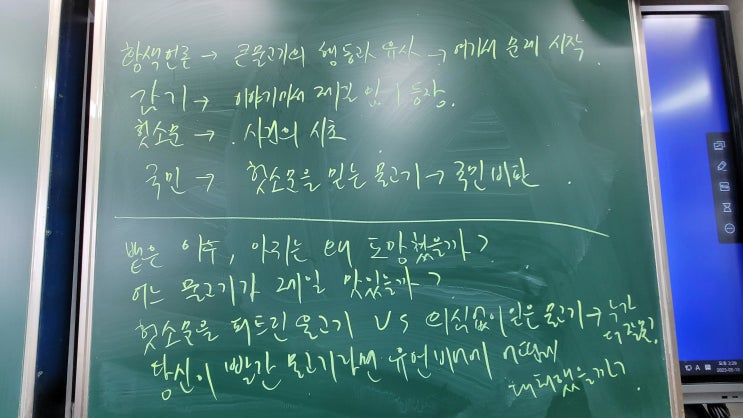 황색언론 → 큰물고기의 행동과 유사 → 여기서 문제 시작.
갈기 → 이야기마다 제일 입 등장.
헛소문 → 사건의 시초
국민 → 헛소문을 믿는 물고기 → 국민 비판.
뱉은 이후, 아지는 왜 도망쳤을까?
어느 물고기가 제일 맛있을까?
헛소문을 퍼트린 물고기 VS 의식없이 믿은 물고기 → 누가 더 잘못?
당신이 빨간 물고기라면 유언비어에 어떻게 대처했을까?
A
오후 2:29